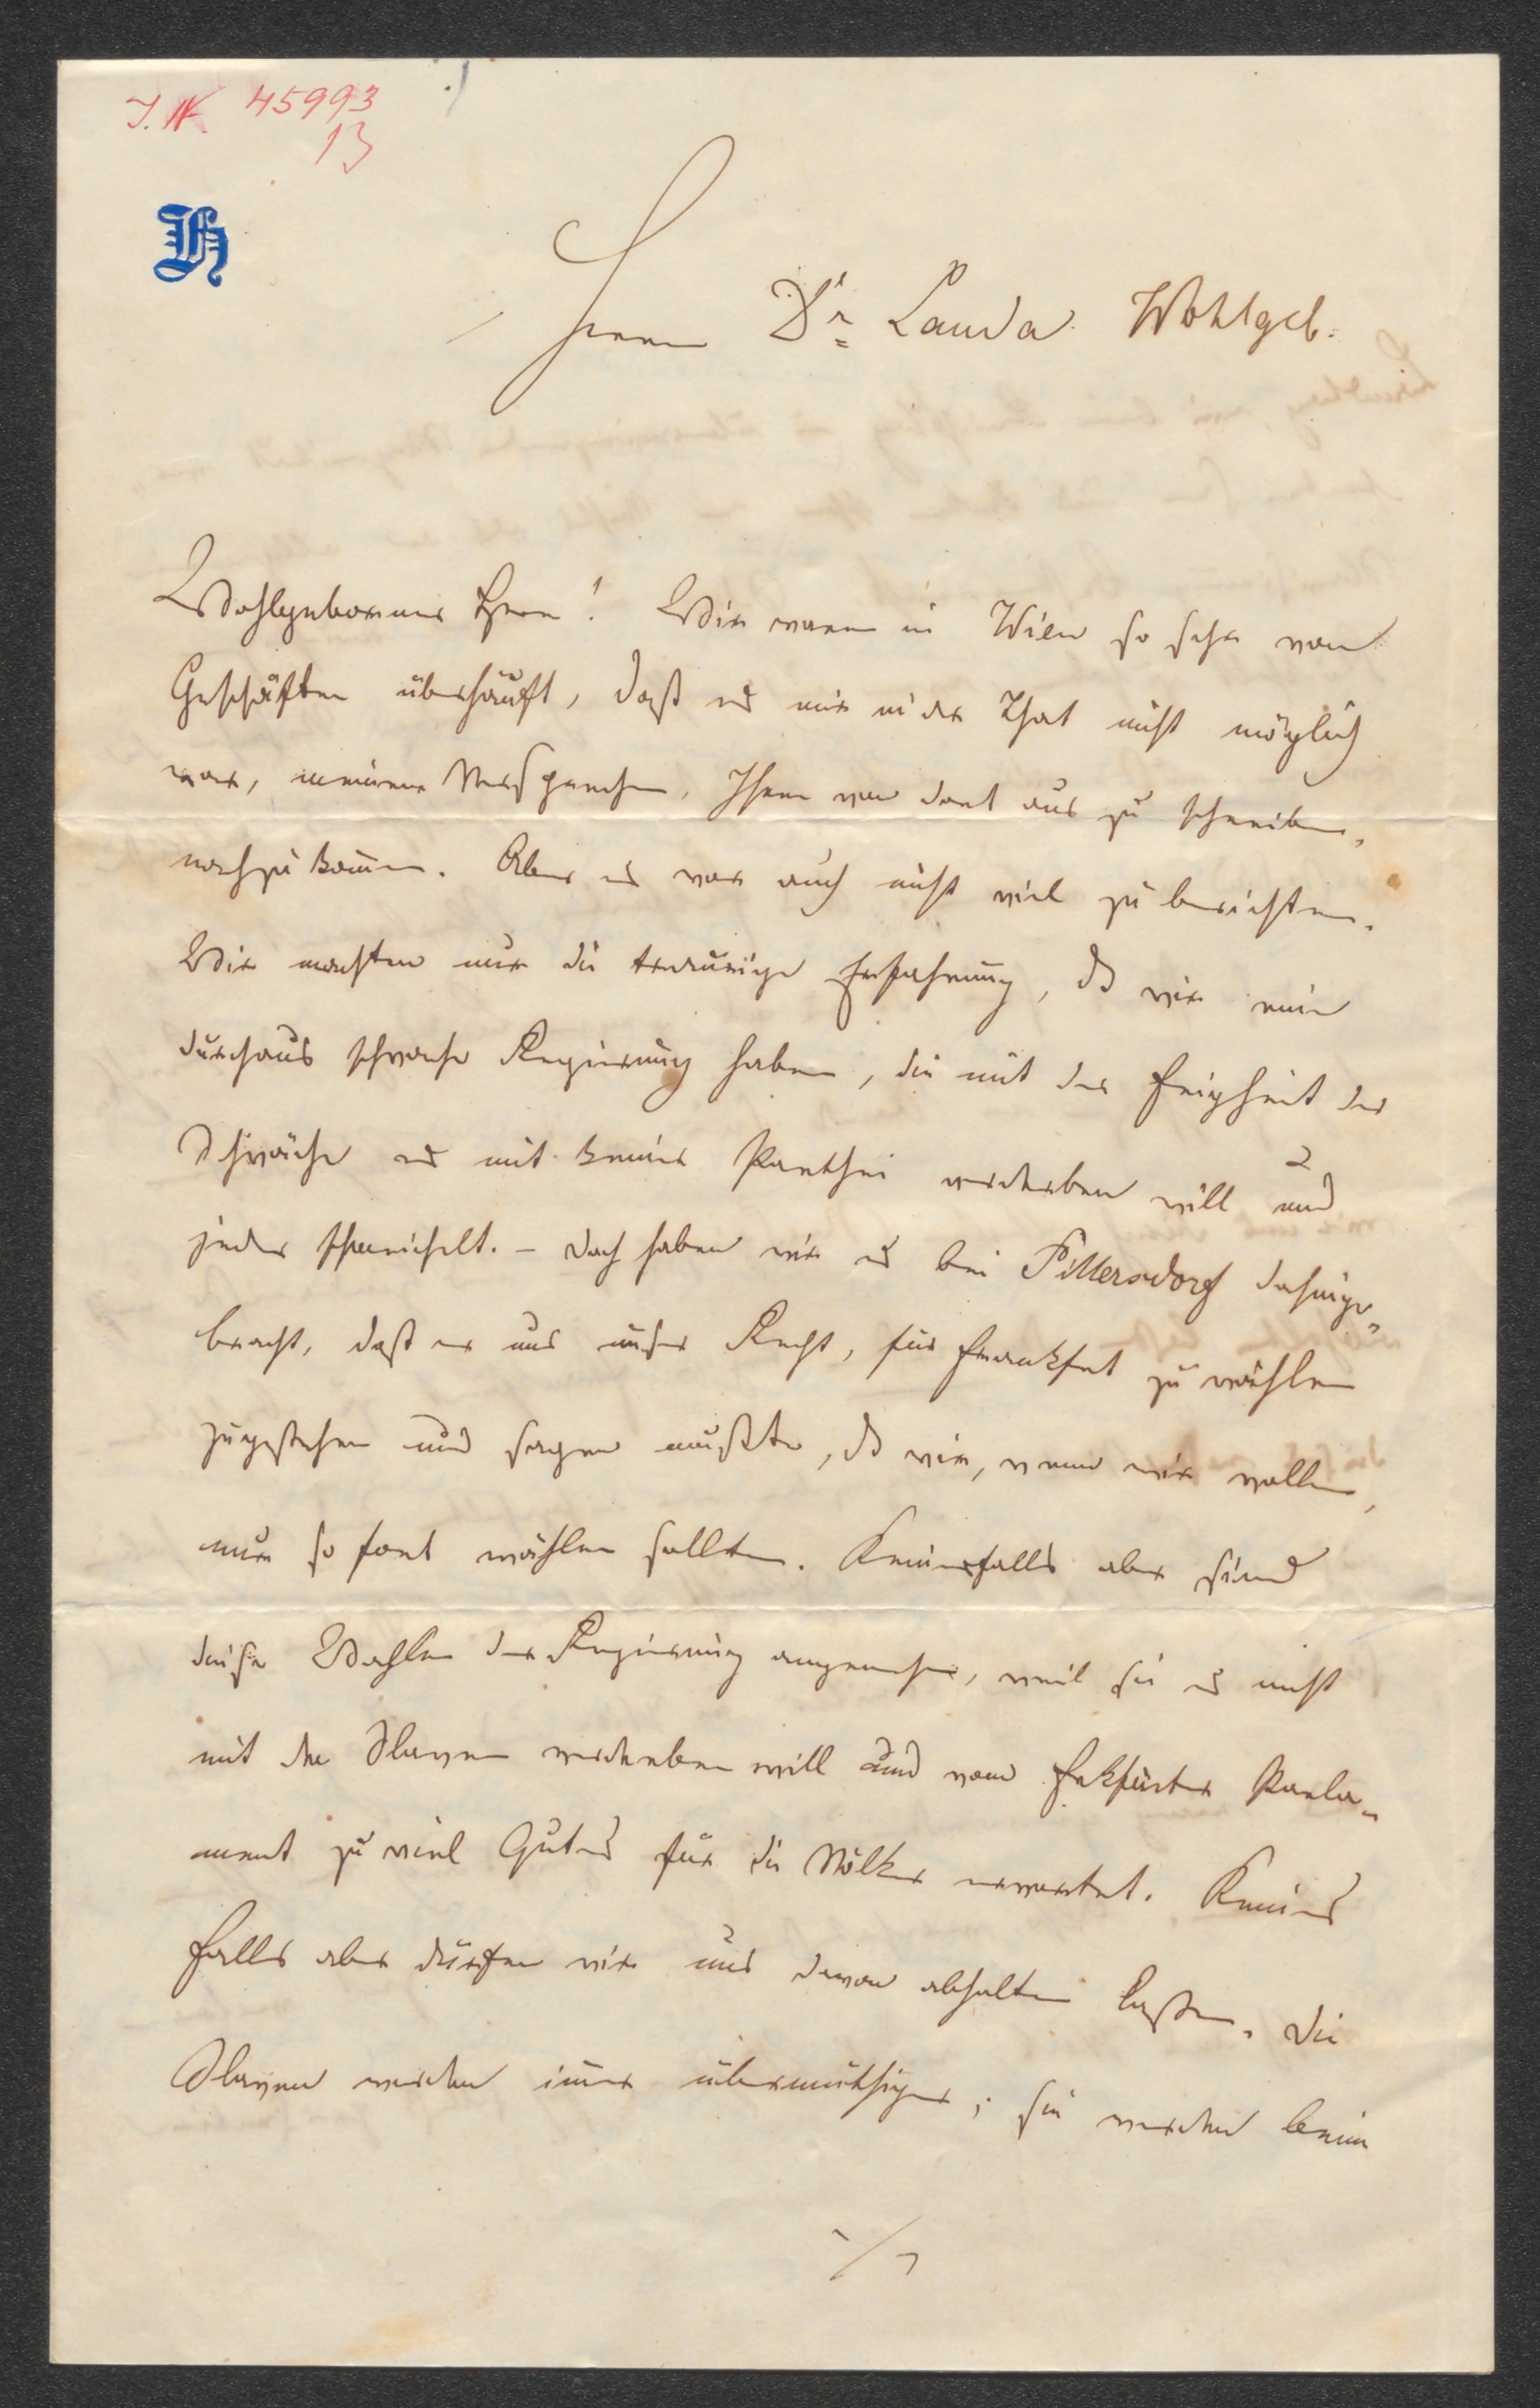 J. N. 45993
13
H
Herrn Dr. Lauda Wohlgeb.
Wohlgeborner Herr! Wir waren in Wien so sehr von
Geschäften überhäuft, daß es mir in der That nicht möglich
war, meinem Versprechen, Ihnen von dort aus zu schreiben,
nachzukom̄en. Aber es war auch nicht viel zu berichten.
Wir machten nur die traurige Erfahrung, dß wir eine
durchaus schwache Regierung haben, die mit der Feigheit der
Schwäche es mit keiner Parthei verderben will und
jeder schmeichelt. – Doch haben wir es bei Pillersdorf dahinge„
bracht, daß er uns unser Recht, für Frankfurt zu wählen
zugestehen und sagen mußte, dß wir, wenn wir wollen,
nur sofort wählen sollten. Keinesfalls aber sind
diese Wahlen der Regierung angenehm, weil sie es nicht
mit den Slaven verderben will und vom Frkfurter Parla„
ment zu viel Gutes für die Völker erwartet. Keines
falls aber dürfen wir uns davon abhalten lassen. Die
Slaven werden im̄er übermüthiger; sie werden beim
./.